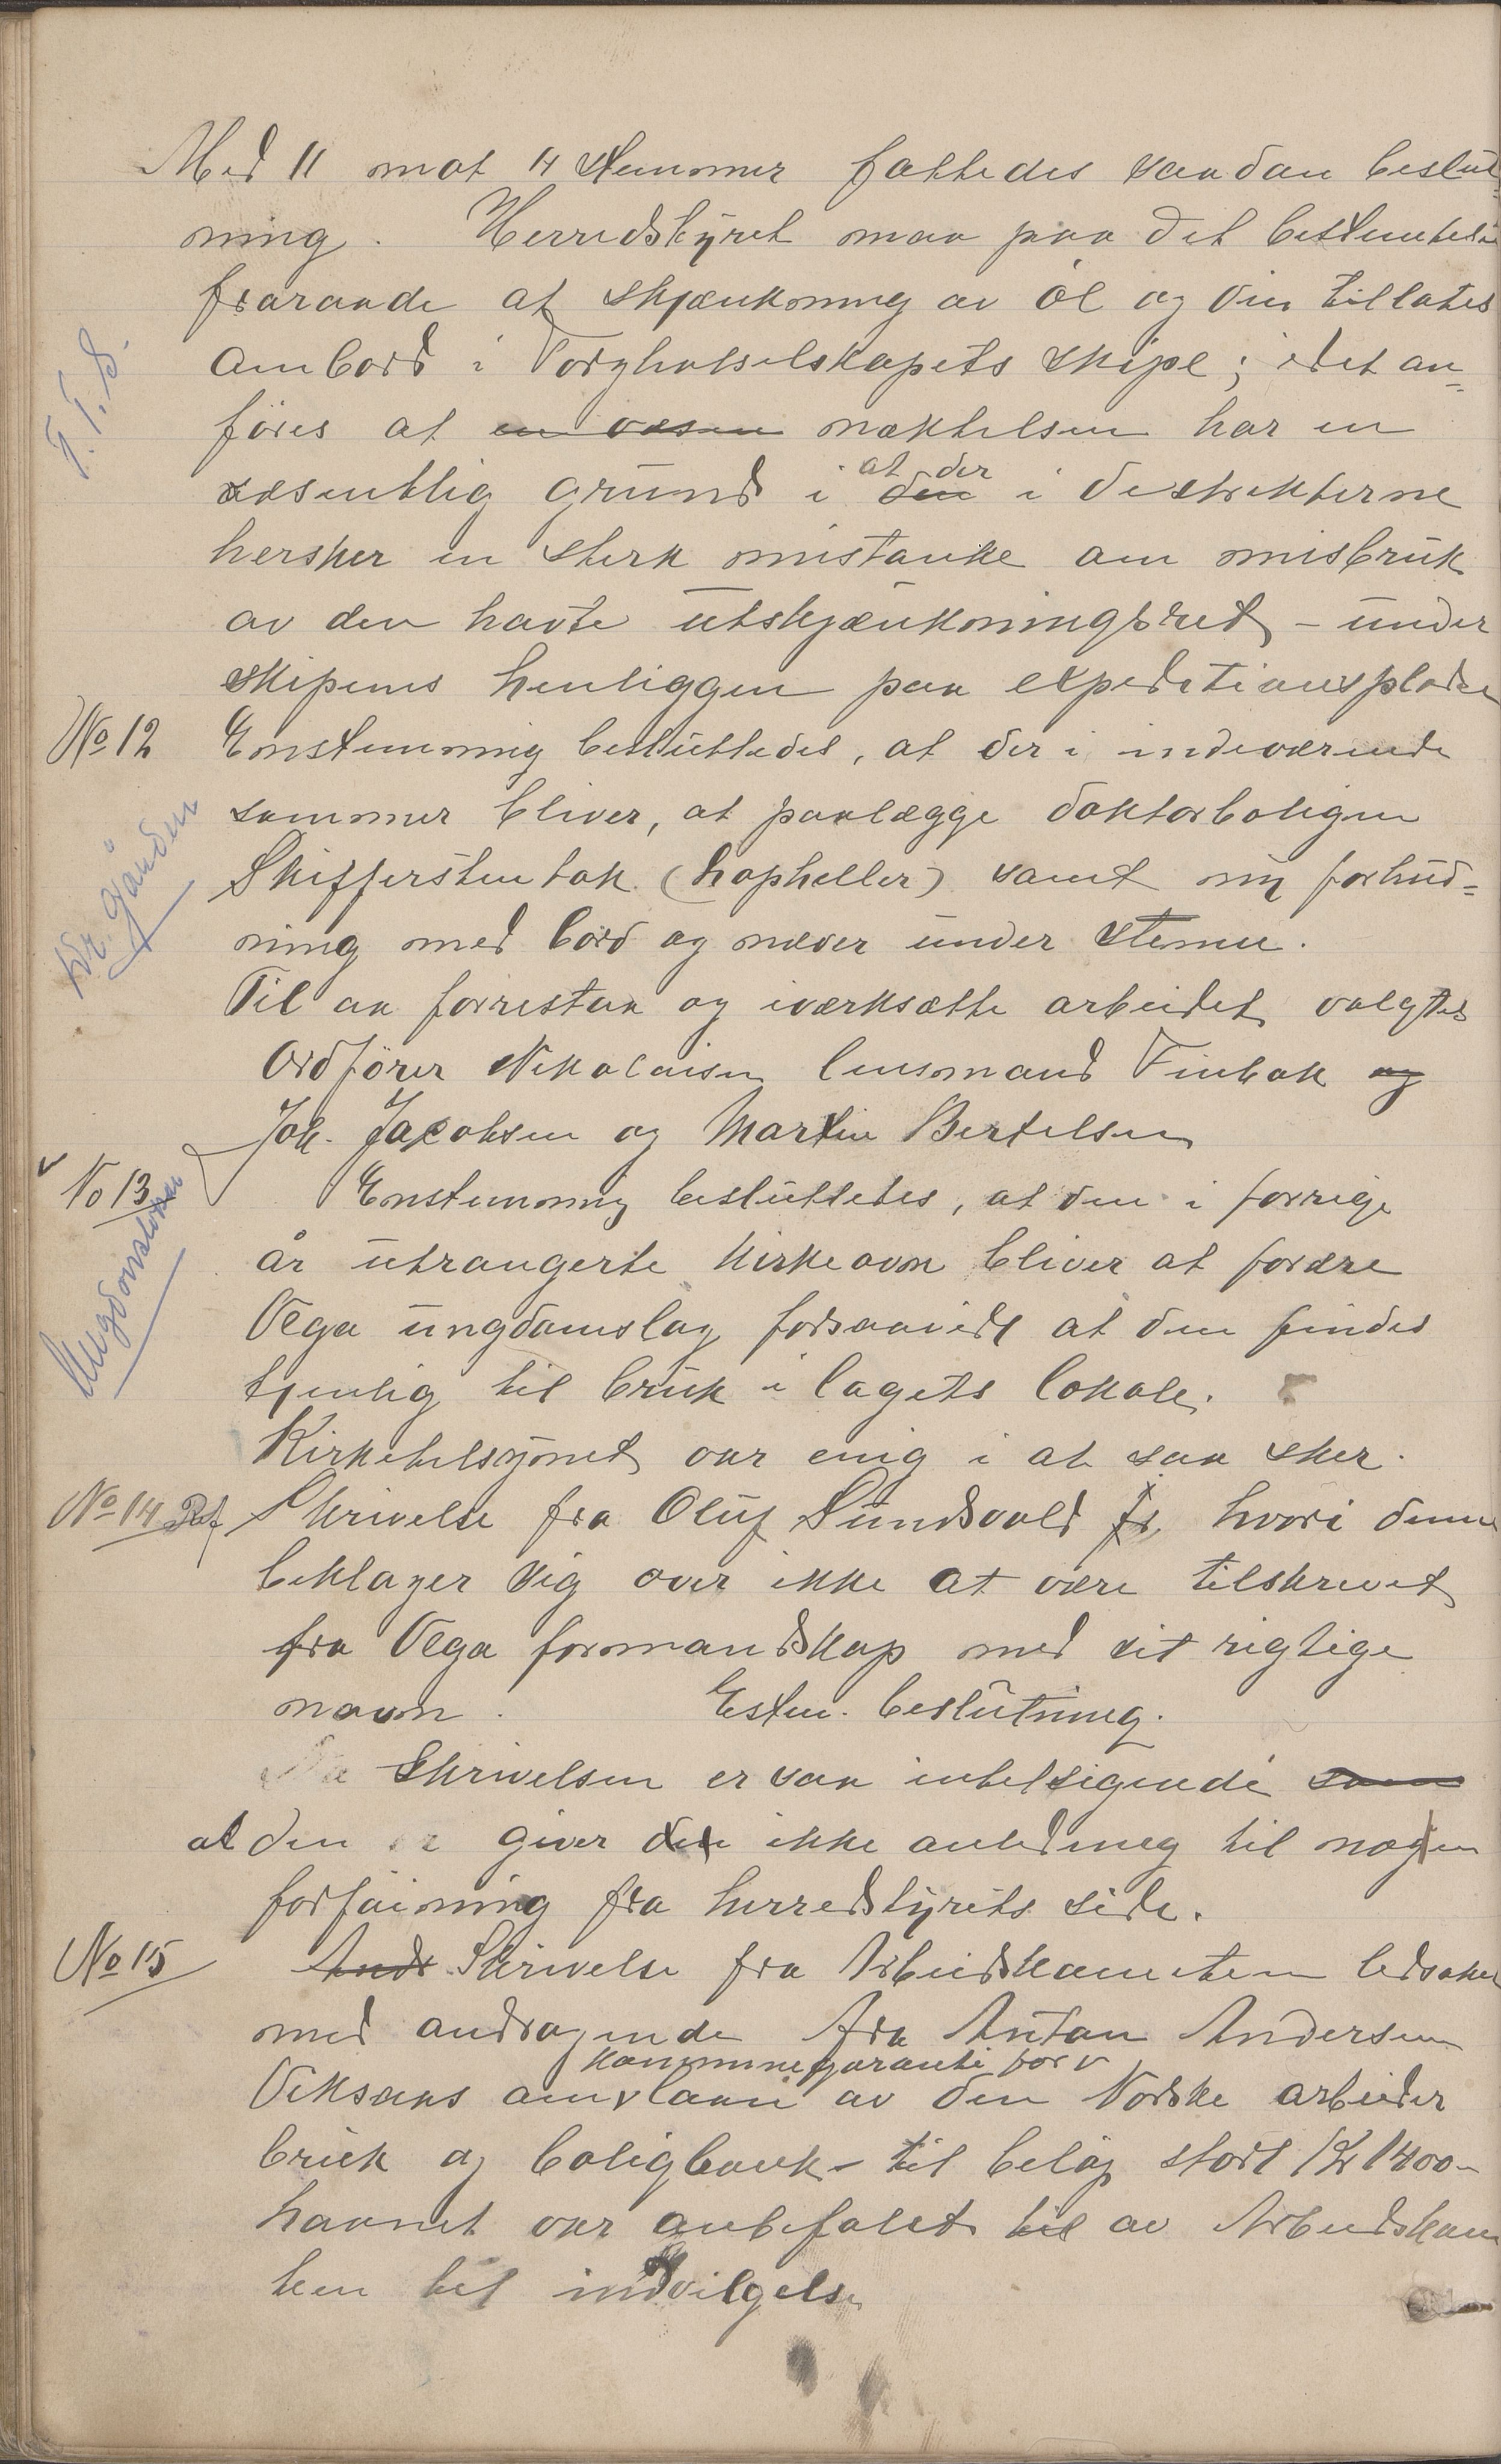 Med 11 mot 4 stemmer fattedes saadan beslut-
ning. Herredstyret maa paa det bestemteste
fraraade at skjænkning av øl og vin tillates
ombord i Torghatselskapets skipe; idet an-
T.T.S.
føres at en væsen næktelsen har en
væsentlig grund i den at der i distrikterne
hersker en sterk mistanke om misbruk
av den havte utskjænkningsret – under
skipenes henliggen paa expeditionspladse
No 12 Enstemmig besluttedes, at der i indeværende
sommer bliver, at paalægge doktorboligen
Dr. gården
Skifferstentak (hopheller) samt ny forhud-
ning med bord og næver under stenen.
Til aa forrestaa og iværksætte arbeidet valgtes
Ordfører Nikolaisen lensmand Finbak og
Joh. Jacobsen og Martin Bertelsen
No 13 Enstemmig besluttetes, at den i forrige
Ungdomslokal
år utrangerte kirkeovn bliver at forære
Vega ungdomslag forsaavidt at den findes
tjenlig til bruk i lagets lokale.
Kirketilsynet var enig i at saa sker.
No 14 Ref Skrivelse fra Oluf Sundsvold jr. hvori denne
beklager sig over ikke at være tilskrevet
fra Vega formandskap med sit rigtige
navn. Estem. beslutning.
Da Skrivelsen er saa intetsigende som
at den giver den ikke anledning til nogen
forføining fra herredstyrets side.
No 15 Andr Skrivelse fra Arbeidskomiteen ledsaket
med andragende fra Anton Andersen
kommunegaranti for
Viksaas om laan av den Norske arbeider
bruk og boligbank – til beløp stort Kr 1400 –
havnet var anbefalet til av Arbeidskom
teen til indvilgelse